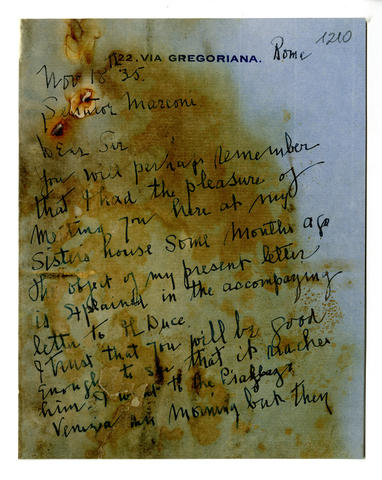 1210
22. VIA GREGORIANA. Rome
Nov 18 35.
Senator Marconi
Dear Sir
You will perhaps remember
that I had the pleasure of
meeting you here at my
Sisters house some months ago
object of my present letter
is explained in the accompanying
letter to Il Duce.
I trust that you will be good
enough to see that it reaches
him. I went to the Piazza
Venezia this morning but they